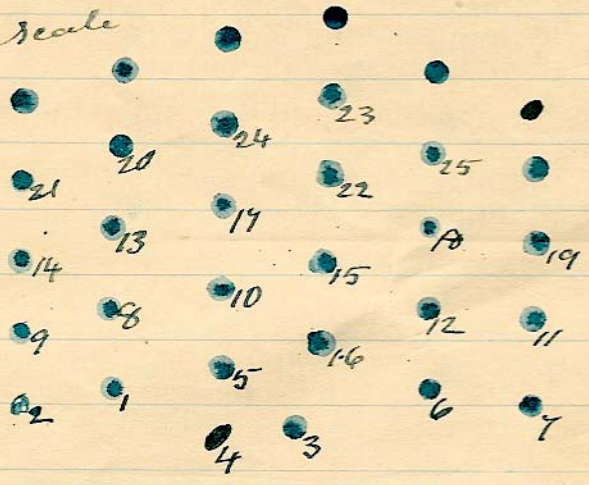 scale
23
24
20 25
21 22
17
13 18 19
14 15
10
8 12 11
9 16
5
1 6 7
2 3
4